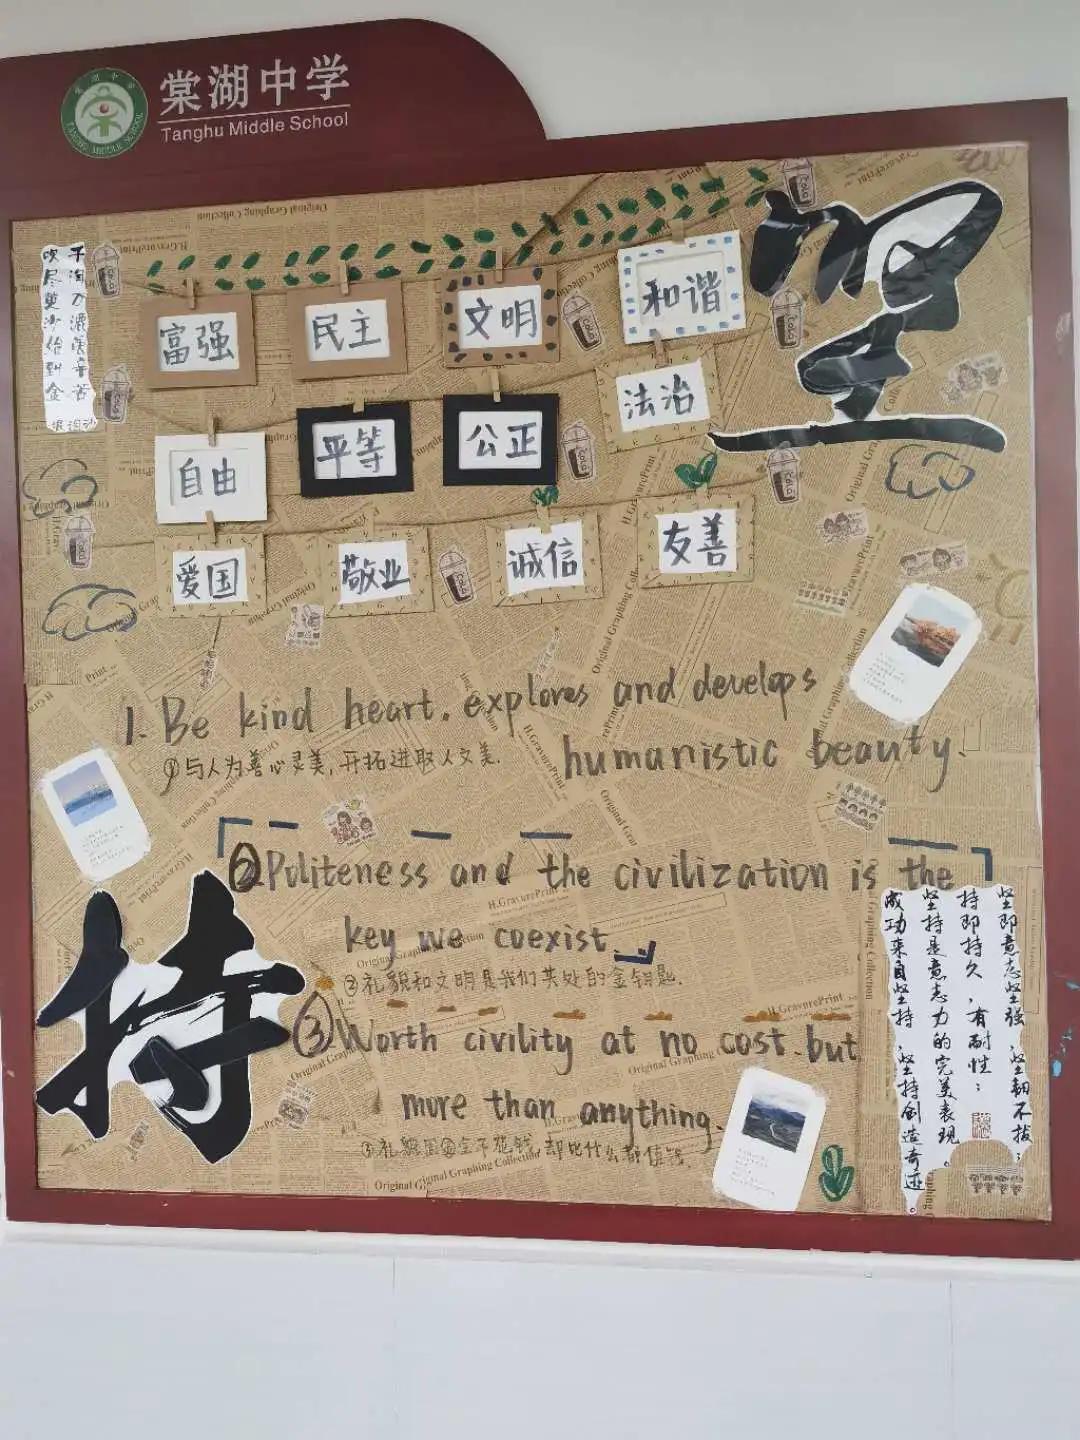 棠湖中学
Tanghu Middle School
千淘万漉虽辛苦
吹尽黄沙始到金
浪淘沙
坚
富强
民主
文明
和谐
自由
平等
公正
法治
爱国
敬业
诚信
友善
1. Be kind heart. explores and develops
humanistic beauty.
①与人为善心灵美,开拓进取人文美.
②Puliteness and the civilization is the
key we coexist.
②礼貌和文明是我们共处的金钥匙.
③Worth civility at no cost. but
more than anything.
持
坚即意志坚强,坚韧不拔;
持即持久,有耐性;
坚持是意志力的完美表现。
成功来自坚持,坚持创造奇迹。